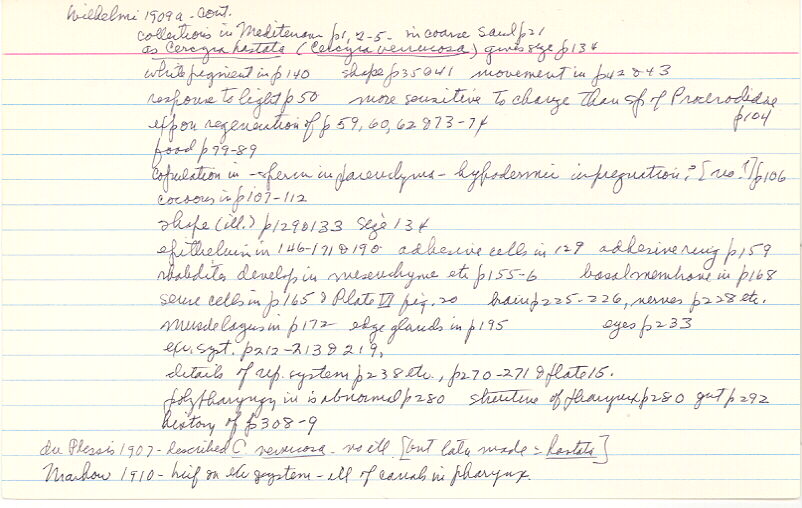 Wilhelmi 1909a - cont.
collections in Mediterran p1, 2-5 - in coarse sand p21
as Cercyra hastata (Cercyra verrucosa) gives size p134
white pigment in p140 shape p35&41 movement in p42&43
response to light p50 more sensitive to change than sp of Procerodidae p104
exp on regeneration of p59, 60, 62 & 73-74
food p79-89
copulation in - sperm in parenchyma - hypodermic impregnation? [no!] p106
cocoons in p107-112
shape (ill.) p129&133 size 134
epithelium in 146-171&190 adhesive cells in 129 adhesive ring p159
rhabdites develop in mesenchyme etc p155-6 basal membrane in p168
sense cells in p165 & Plate fig. 20 brain p225-226, nerves p228 etc.
muscle layers in p172 - edge glands in p195 eyes p233
exc. syst. p212-213&219,
details of rep. system p238 etc., p270-271 & plate 15.
polypharyngy in is abnormal p280 structure of pharynx p280 gut p292
history of p308-9
du Plessis 1907 - described C. verrucosa - no ill [but later made = hastata]
1910 - brief on exc system - ill of canals in pharynx.